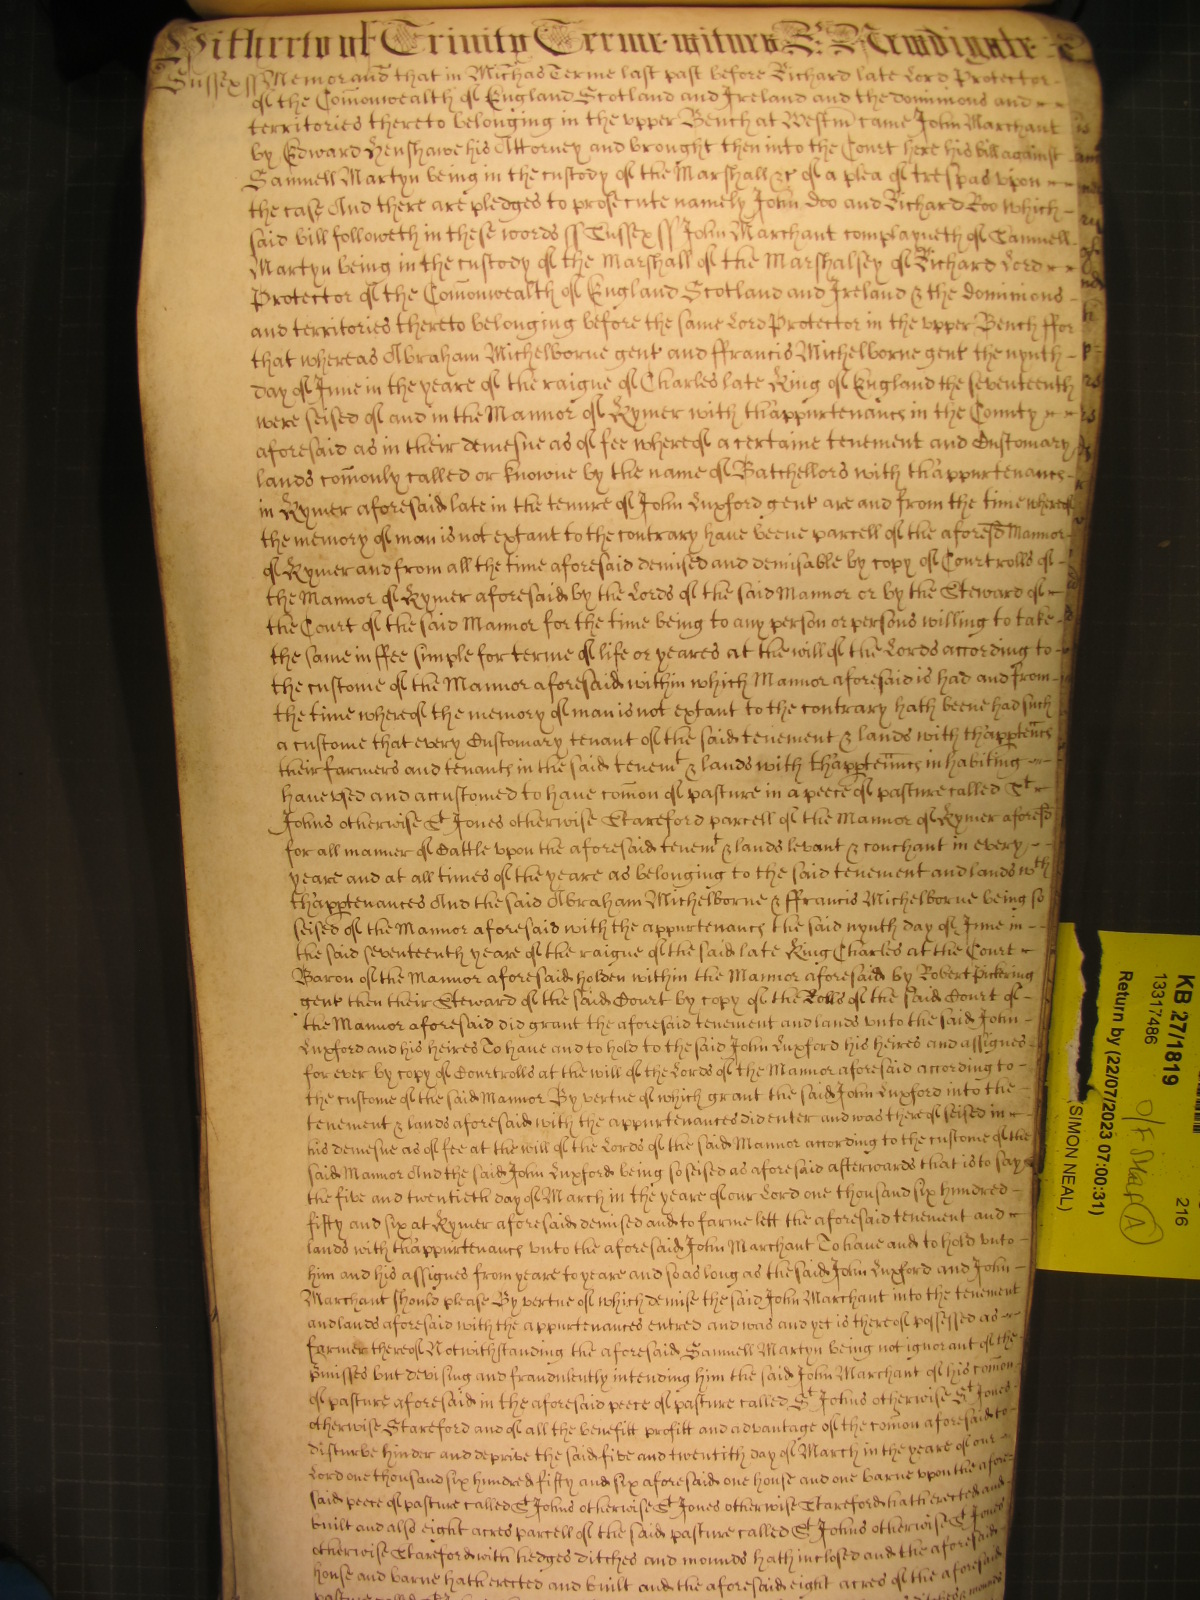 Hitherto of Trinity Terme witnes R: Newdigate
Sussex ss Memorand that in Michas Terme last past before Richard late Lord Protector
of the Com̄onwealth of England Scotland and Ireland and the dominions and
territories thereto belonging in the vpper Bench at Westm̄ came John Marchant
by Edward Henshawe his Attorney and brought then into the Court here his bill against
Samuell Martyn being in the custody of the Marshall &c of a plea of trespas vpon
the case And there are pledges to prosecute namely John Doo and Richard Roo which
said bill followeth in these words ss Sussex ss John Marchant complayneth of Samuell
Martyn being in the custody of the Marshall of the Marshalsey of Richard Lord
Protector of the Com̄onwealth of England Scotland and Ireland & the dominions
and territories thereto belonging before the same Lord Protector in the vpper Bench ffor
that whereas Abraham Michelborne gent and ffrancis Michelborne gent the nynth
day of June in the yeare of the raigne of Charles late King of England the seventeenth
were seised of and in the Mannor of Kymer with th'appurtenances in the County
aforesaid as in their demesne as of fee whereof a certaine tenement and Customary
lands com̄only called or knowne by the name of Batchellors with th'appurtenances
in Kymer aforesaid late in the tenure of John Luxford gent are and from the time whereof
the memory of man is not extant to the contrary haue beene parcell of the aforesd Mannor
of Kymer and from all the time aforesaid demised and demisable by copy of Court rolls of
the Mannor of Kymer aforesaid by the Lords of the said Mannor or by the Steward of
the Court of the said Mannor for the time being to any person or persons willing to take
the same in ffee simple for terme of life or yeares at the will of the Lords according to
the custome of the Mannor aforesaid within which Mannor aforesaid is had and from
the time whereof the memory of man is not extant to the contrary hath beene had such
a custome that every Customary tenant of the said tenement & lands with th'apptencs
their farmers and tenants in the said tenemt & lands with th'apptenncs inhabiting
haue vsed and accustomed to haue com̄on of pasture in a peece of pasture called St
Johns otherwise St Jones otherwise Stareford parcell of the Mannor of Kymer aforesd
for all manner of Cattle vpon the aforesaid tenemt & lands levant & couchant in every
yeare and at all times of the yeare as belonging to the said tenement and lands wth
th'apptenances And the said Abraham Michelborne & ffrancis Michelborne being so
seised of the Mannor aforesaid with the appurtenances the said nynth day of June in
the said seventeenth yeare of the raigne of the said late King Charles at the Court
Baron of the Mannor aforesaid holden within the Mannor aforesaid by Robert Pickering
gent then their Steward of the said Court by copy of the Rolls of the said Court of
the Mannor aforesaid did grant the aforesaid tenement and lands vnto the said John
Luxford and his heires To haue and to hold to the said John Luxford his heires and assignes
for ever by copy of Court rolls at the will of the Lords of the Mannor aforesaid according to
the custome of the said Mannor By vertue of which grant the said John Luxford into the
tenement & lands aforesaid with the appurtenances did enter and was thereof seised in
his demesne as of fee at the will of the Lords of the said Mannor according to the custome of the
said Mannor And the said John Luxford being so seised as aforesaid afterwards that is to say
the five and twentieth day of March in the yeare of our Lord one thousand six hundred
fifty and six at Kymer aforesaid demised and to farme lett the aforesaid tenement and
lands with th'appurtenances vnto the aforesaid John Marchant To haue and to hold vnto
him and his assignes from yeare to yeare and so as long as the said John Luxford and John
Marchant should please By vertue of which demise the said John Marchant into the tenement
and lands aforesaid with the appurtenances entred and was and yet is thereof possessed as
farmer thereof Notwithstanding the aforesaid Samuell Martyn being not ignorant of the
p̄misses but devising and fraudulently intending him the said John Marchant of his com̄on
of pasture aforesaid in the aforesaid peece of pasture called St Johns otherwise St Jones
otherwise Stareford and of all the benefitt profitt and advantage of the com̄on aforesaid to
disturbe hinder and deprive the said five and twentith day of March in the yeare of our
Lord one thousand six hundred fifty and six aforesaid one house and one barne vpon the afore
said peece of pasture called St Johns otherwise St Jones otherwise Stareford hath erected and
built and also eight acres parcell of the said pasture called St Johns otherwise St Jones
otherwise Stareford with hedges ditches and mounds hath inclosed and the aforesaid
house and barne hath erected and built and the aforesaid eight acres of the aforesaid
KB 27/1819
216
13317486
O/F Staff A
Return by (22/07/2023 07:00:31)
(SIMON NEAL)